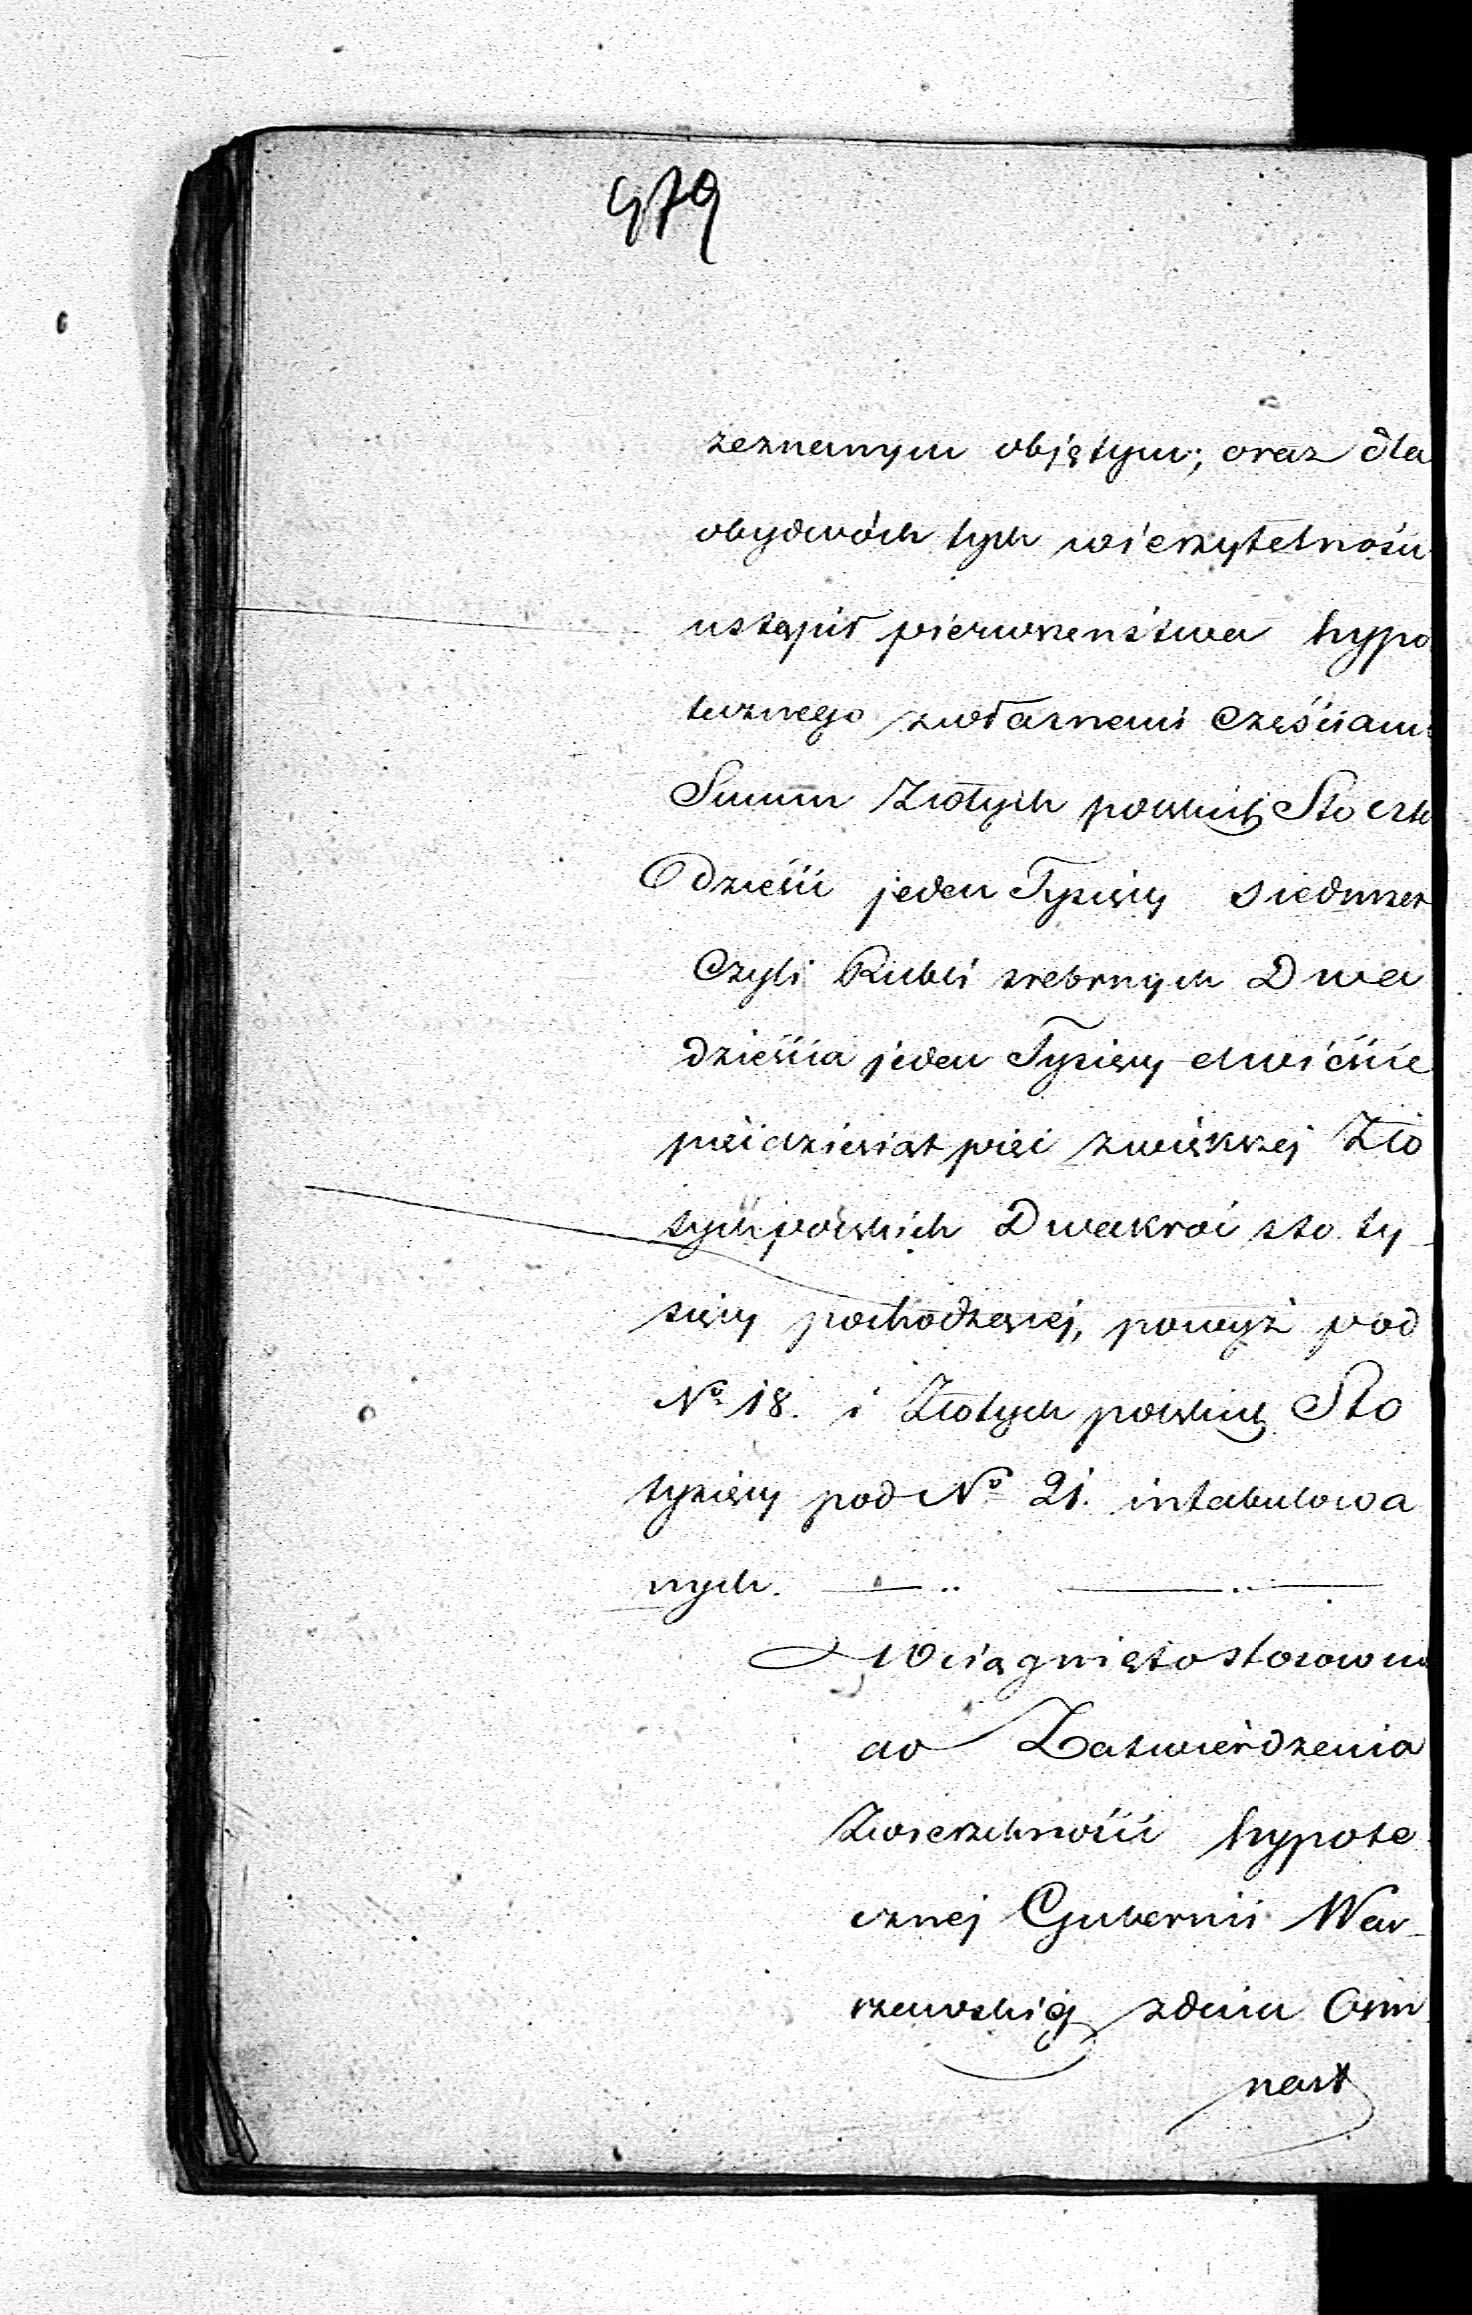 479
zeznanym objętym; oraz dla
obydwóch tych wierzytelności
ustąpił pierwszeństwa hypo
tecznego zwłasnemi Częściami
Summ Złotych polskich Sto czter
dzieści jeden Tysięcy siedmset
Czyli Rubli srebrnych Dwa
dzieścia jeden Tysięcy dwieście
pięćdziesiąt pięć zwiększej Zło
tych polskich Dwakroć sto ty-
sięcy pochodzącej, powyż pod
No 18. i Złotych polskich Sto
tysięcy pod No 21. intabulowa
nych.
Wciągnięto stosownie
do Zatwierdzenia
Zwierzchności hypote
cznej Gubernii War-
szawskiej zdnia Osm
nast